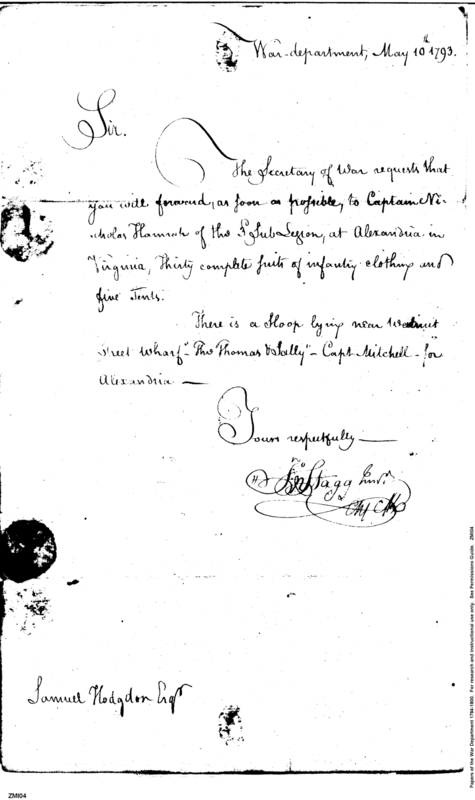 War-department, May 10th 1793.
Sir.
The Secretary of War requests that
you will forward, as soon as possible, to Captain Ni-
cholas Hannah of the 3d Sub Legion, at Alexandria in
Virginia, Thirty complete suits of infantry clothing and
five Tents.
There is a Sloop lying near Walnut
street wharf "The Thomas & Sally" - Capt Mitchell - for
Alexandria —
Yours respectfully —
Jno Stagg Junr
Samuel Hodgdon Esqr
Papers of the War Department 1784-1800. For research and instructional use only. See Permissions Guide. ZMI04
ZMI04